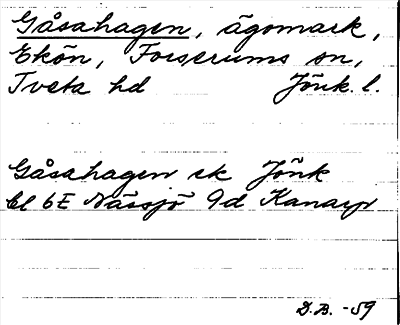 Gåsahagen, ägomark,
Ekön, Forserums sn,
Tveta hd Jönk. l.
Gåsahagen ek Jönk
bl 6E Nässjö 9d Kanarp
D.B. -59